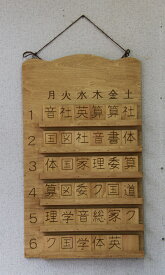 月火水木金土
1 音社英算算社
2 国図社音書体
3 体国家理委算
4 算図委ク国道
5 理学音総家ク
6 ク国学体英